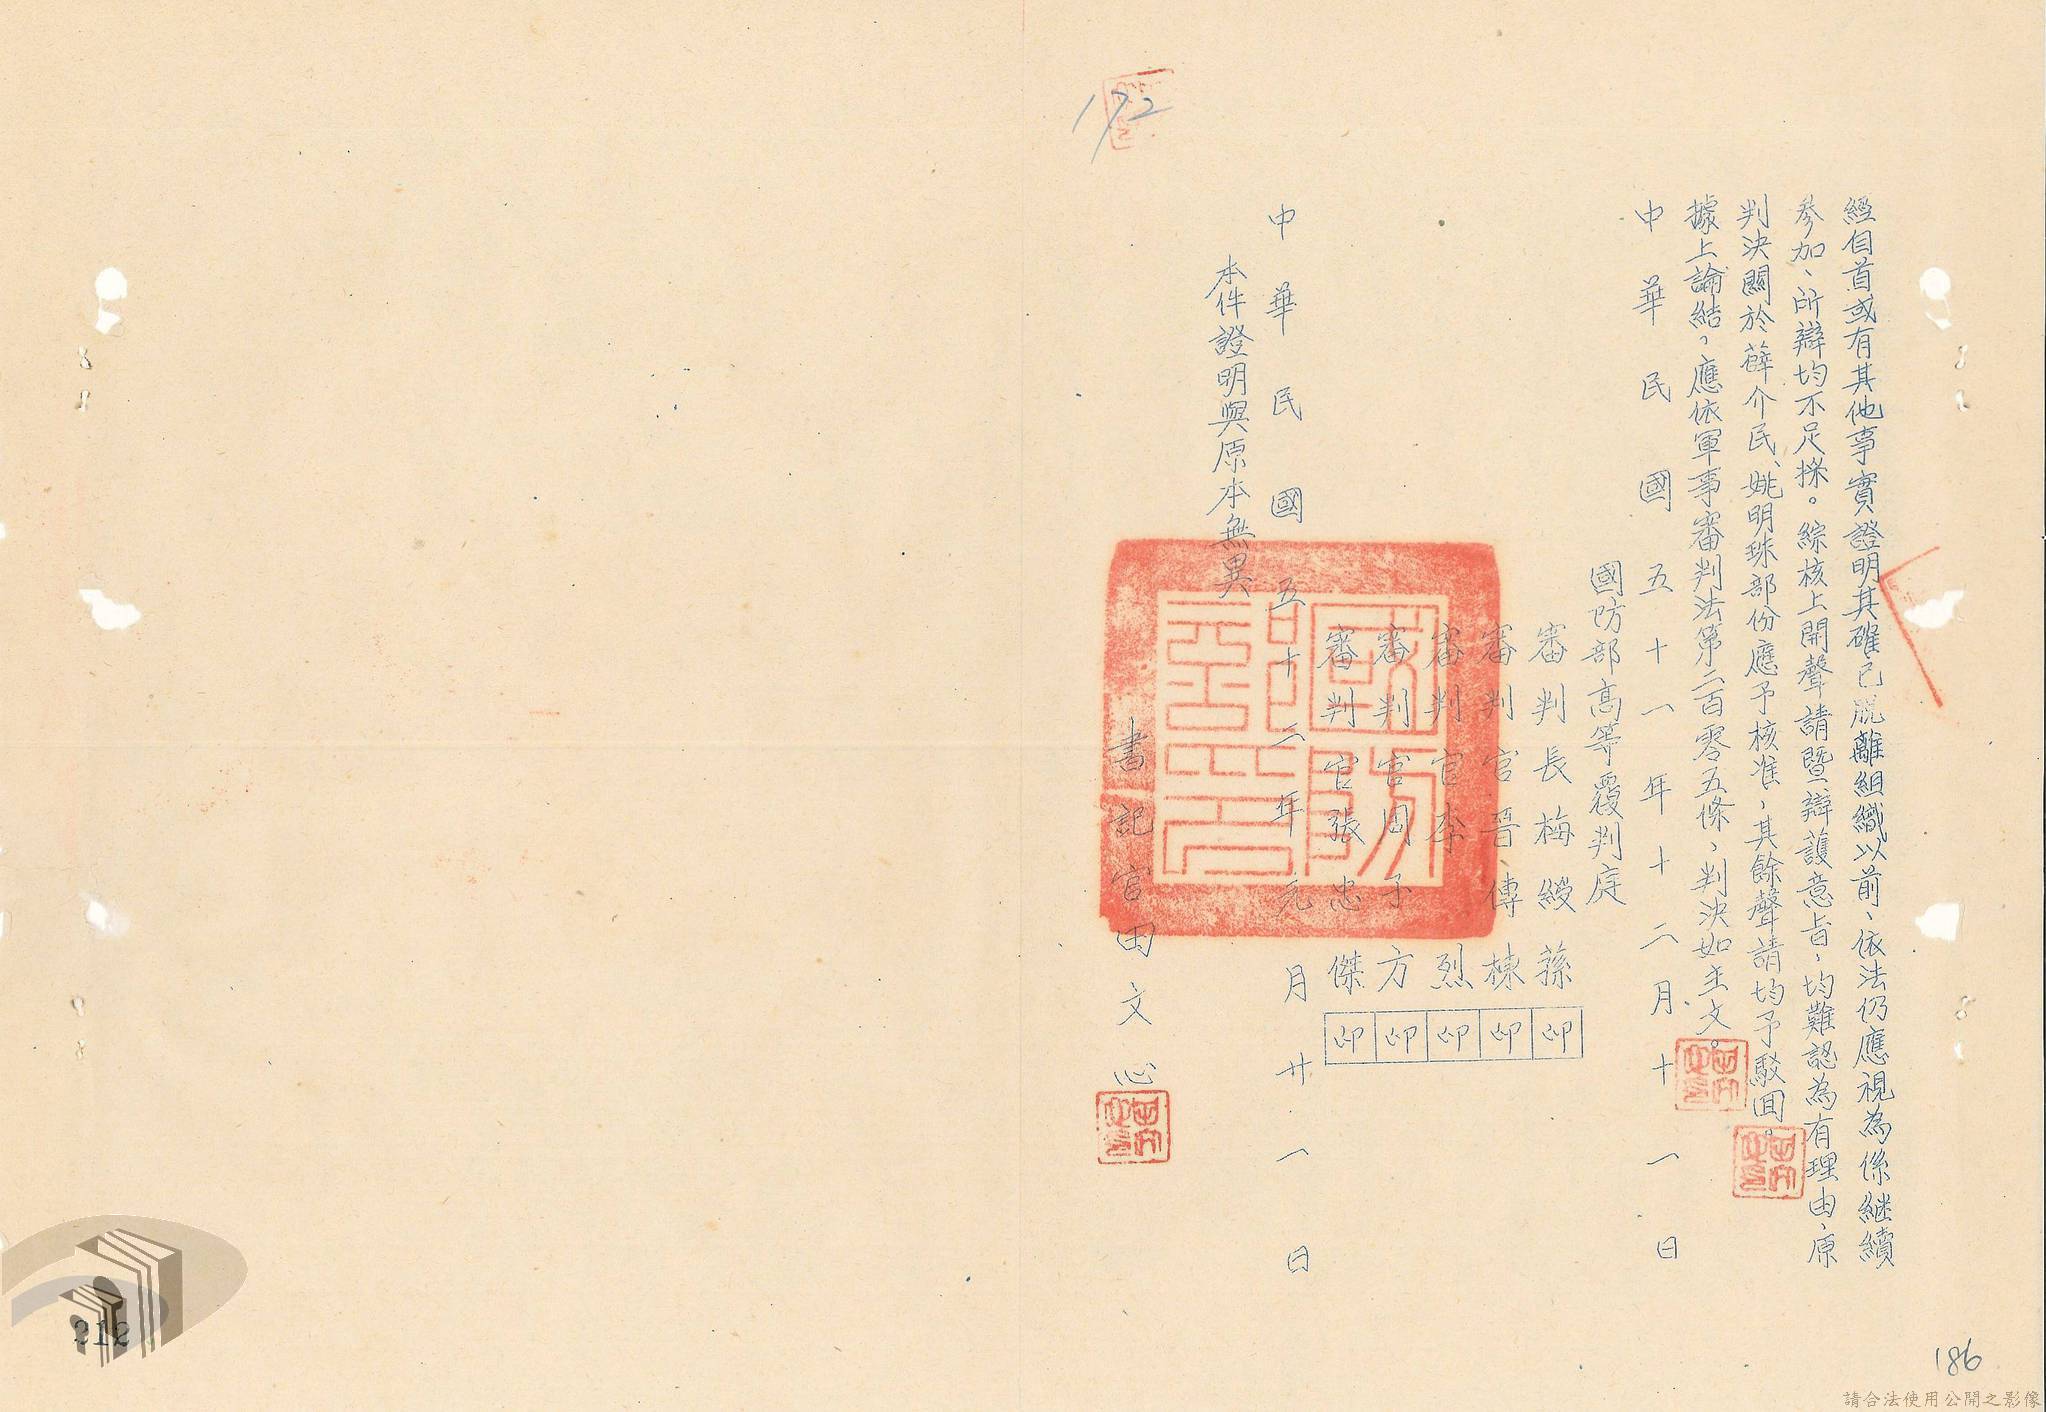 經自首或有其他事實證明其確已脫離組織以前，依法仍應視為係继續
參加、所辯均不足採。綜核上開聲請暨辯護意旨，均難認為有理由，原
判決關於薛介民、姚明珠部份應予核准，其餘聲請均予駁回。
據上論結，應依軍事審判法第二百零五條，判決如主文。
中華民國五十一年十二月十一日
國防部高等覆判庭
審判長梅綬蓀 印
審判官晉傳棟 印
審判官李烈 印
審判官周予方 印
審判官張忠傑 印
中華民國五十二年元月廿一日
本件證明與原本無異
書記官田文心
國防部印
172
186
212
請合法使用公開之影像